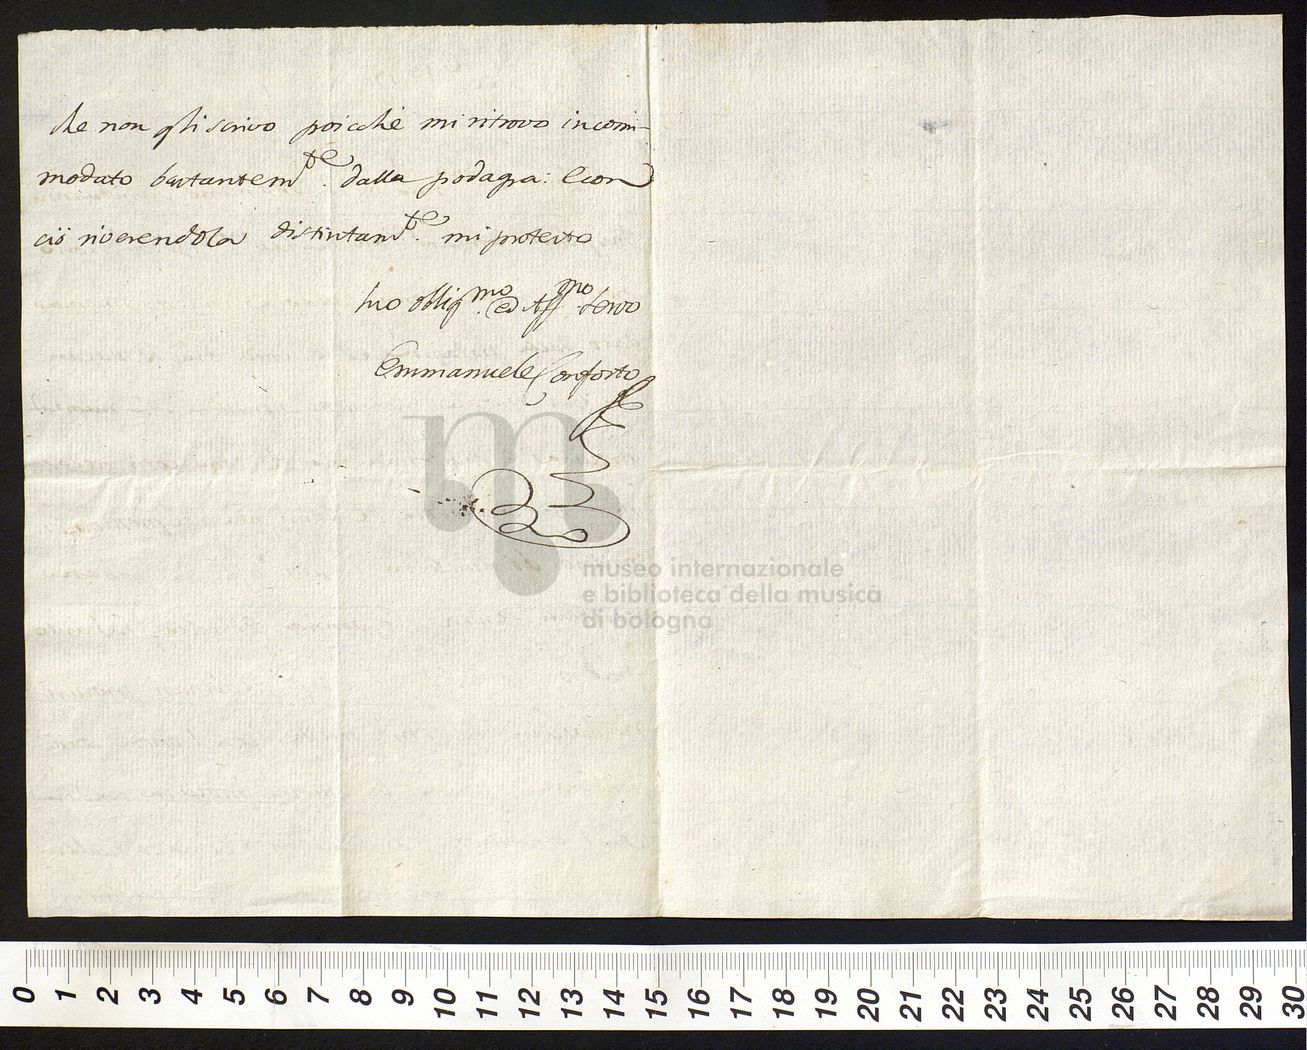 che non gli scrivo poicchè mi ritrovo incom-
modato bastantem.te dalla podagra: E con
ciò riverendola distintam.te mi protesto
Suo obblig.mo ed Aff.mo Servo
Emmanuele Conforto
museo internazionale
e biblioteca della musica
di bologna
0 1 2 3 4 5 6 7 8 9 10 11 12 13 14 15 16 17 18 19 20 21 22 23 24 25 26 27 28 29 30